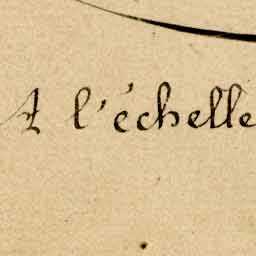 A l'échelle